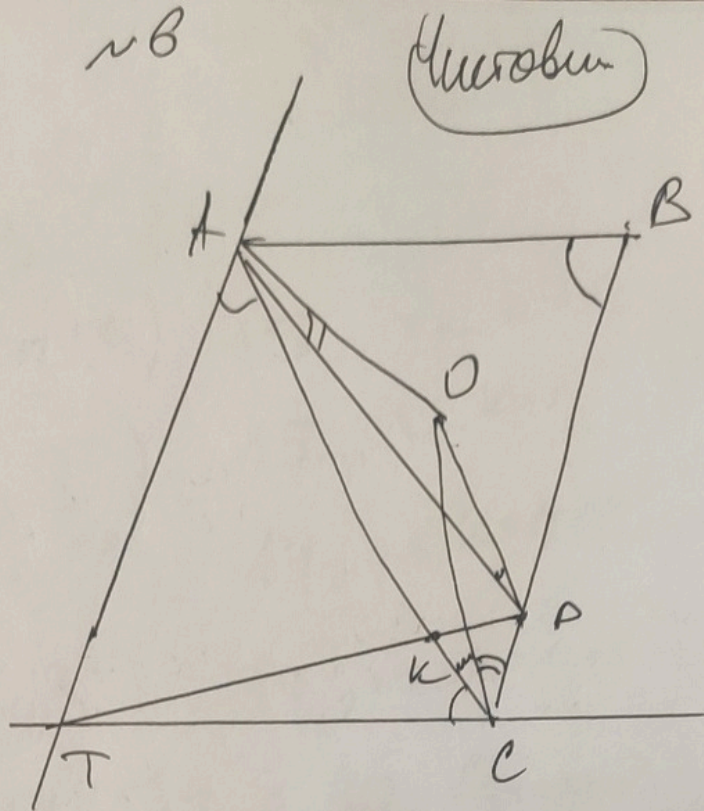 №6
Чистовик
A
B
O
P
K
T
C